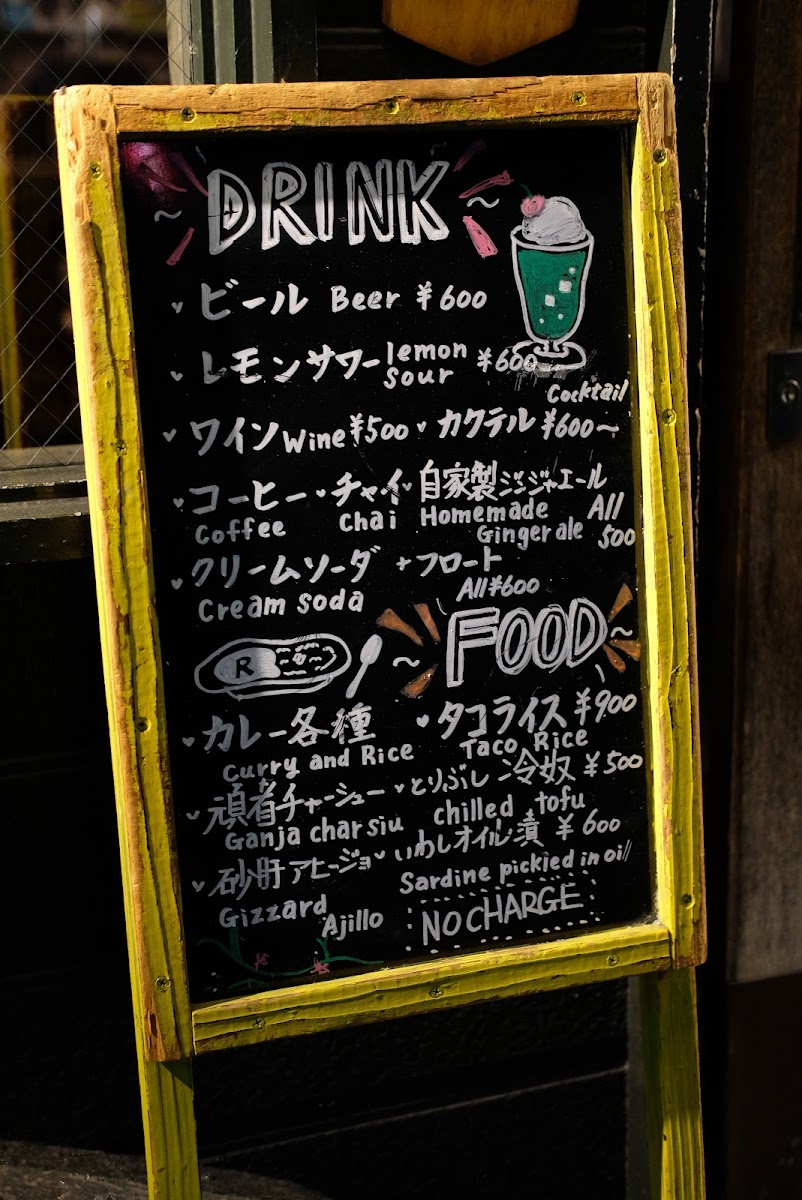 DRINK
ビール Beer ¥600
レモンサワー lemon sour ¥600
Cocktail
ワイン Wine ¥500 カクテル ¥600～
コーヒー チャイ 自家製ジンジャエール
Coffee Chai Homemade All
Ginger ale 500
クリームソーダ +フロート
Cream soda All ¥600
FOOD
R
カレー各種 タコライス ¥900
Curry and Rice Taco Rice
頑者チャーシュー とりぶし冷奴 ¥500
Ganja char siu chilled tofu
砂肝アヒージョ いわしオイル漬 ¥600
Gizzard Ajillo Sardine pickied in oil
NO CHARGE